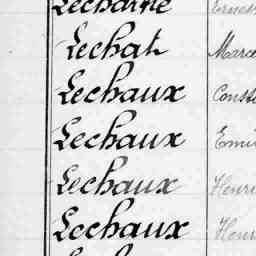 Lecharne
Lechat Marce
Lechaux Const
Lechaux Emi
Lechaux Henri
Lechaux Henr